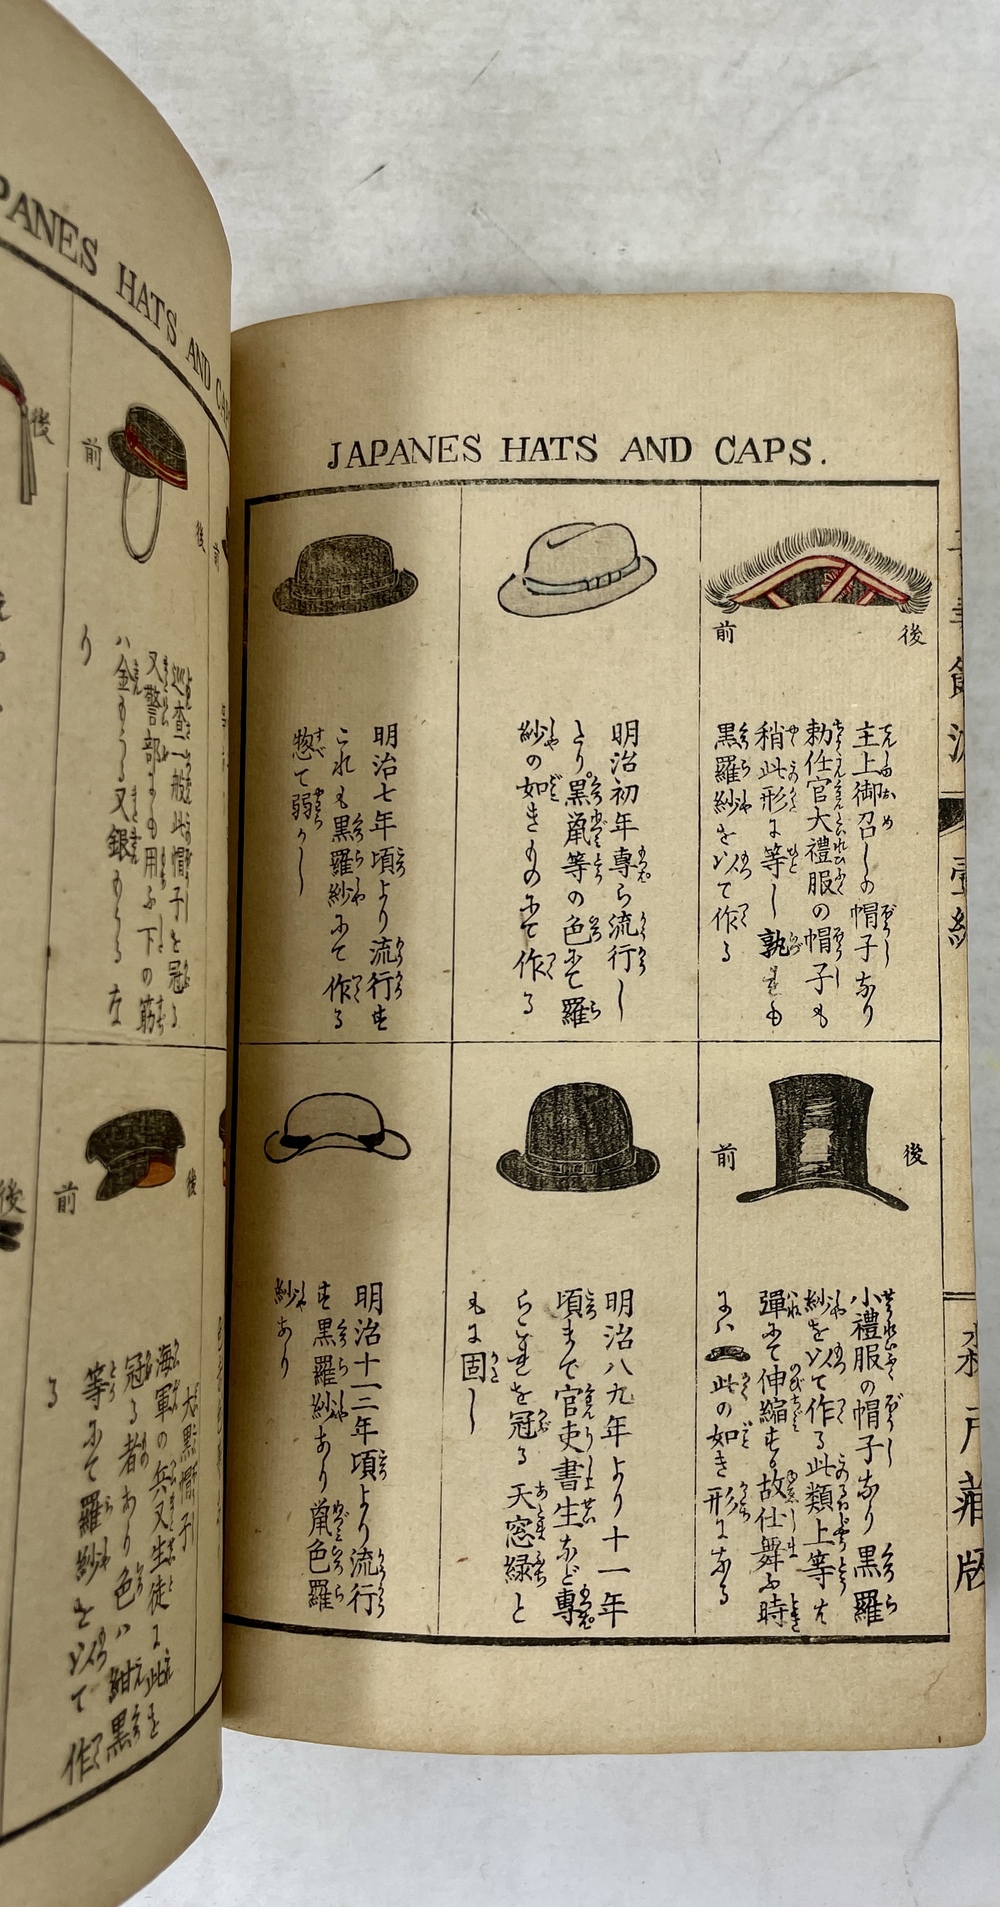 JAPANES HATS AND CAPS.
前
後
主上御召しの帽子なり
勅任官大禮服の帽子も
稍此形に等し孰れも
黒羅紗を以て作る
明治初年専ら流行し
たり黒鼠等の色にて羅
紗の如きものにて作る
明治七年頃より流行す
これも黒羅紗にて作る
惣て弱かし
前
後
小禮服の帽子なり黒羅
紗を以て作る此類上等は
彈にて伸縮する故仕舞ふ時
には
此の如き形になる
明治八九年より十一年
頃まで官吏書生など專
らこれを冠る天窓緑と
もに固し
明治十一二年頃より流行
す黒羅紗あり鼠色羅
紗あり
版
JAPANES HATS AND CAP
後
前
後
前
巡査一般此帽子を冠る
又警部にも用ふ下の筋
ハ金もある又銀もある な
り
後
前
後
大黒帽子
海軍の兵又生徒に此を
冠る者あり色ハ紺黒
等にて羅紗を以て作
る